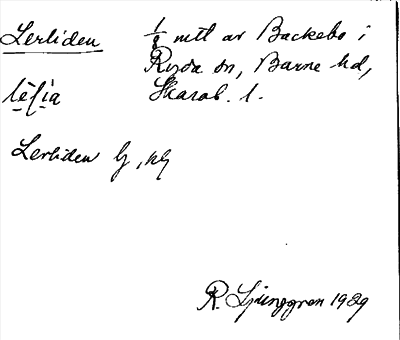 Lerliden 1/8 mtl av Backebo i
Ryda sn, Barne hd,
Skarab. l.
Lerliden G, hG
R. Ljunggren 1929